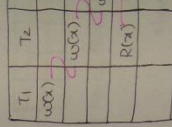 T1 T2
w(x)
w(x)
R(x)